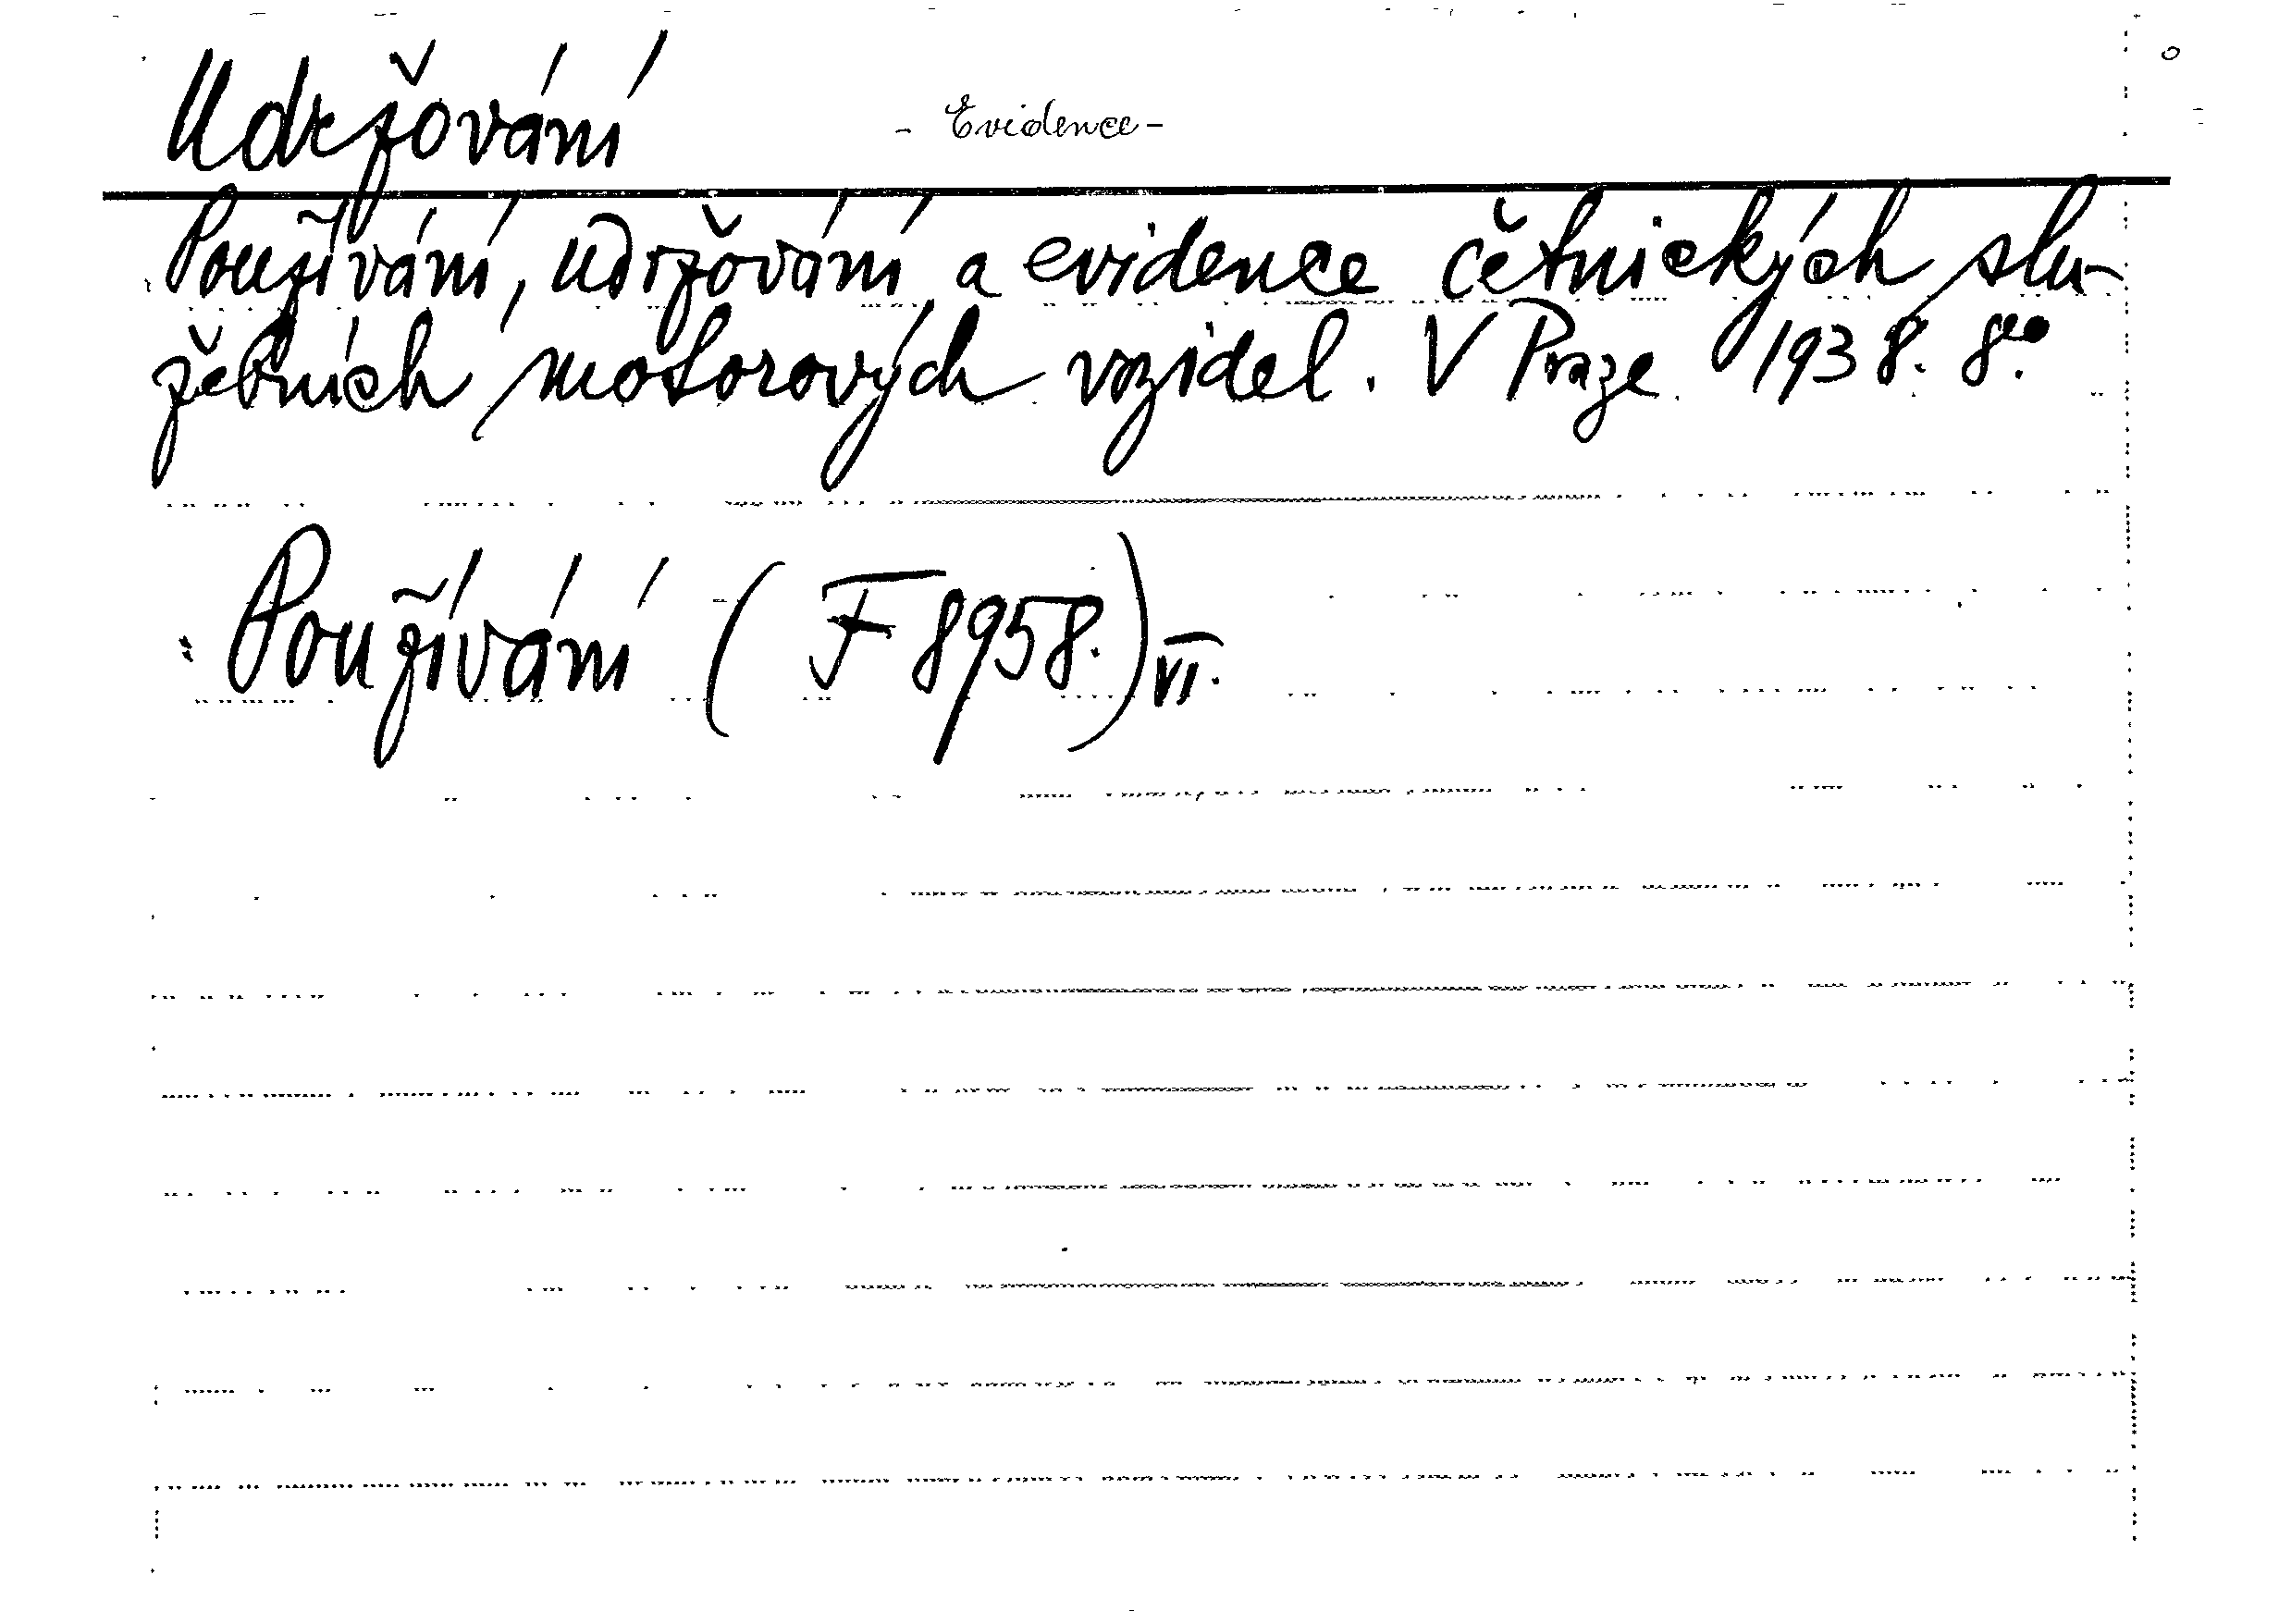 Udržování - Evidence -
Používání, udržování a evidence četnických slu-
žebních motorových vozidel. V Praze 1938. 8°.
Používání (F 8958.) VI.